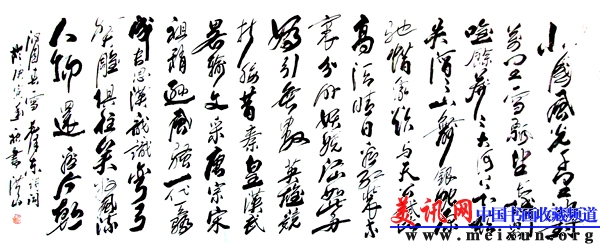 北國風光千里冰封
万里雪飘望长城内外
惟餘莽莽大河上下顿
失滔滔山舞銀蛇原
驰蜡象欲与天公试比
高须晴日看红装素
裹分外妖娆江山如此多
娇引无数英雄竞
折腰昔秦皇漢武
略输文采唐宗宋
祖稍逊風骚一代天骄
成吉思漢只識弯弓
射大雕俱往矣数風流
人物還看今朝
沁園春雪毛泽东诗词
美讯网 中国书画收藏频道
www.meixun.org